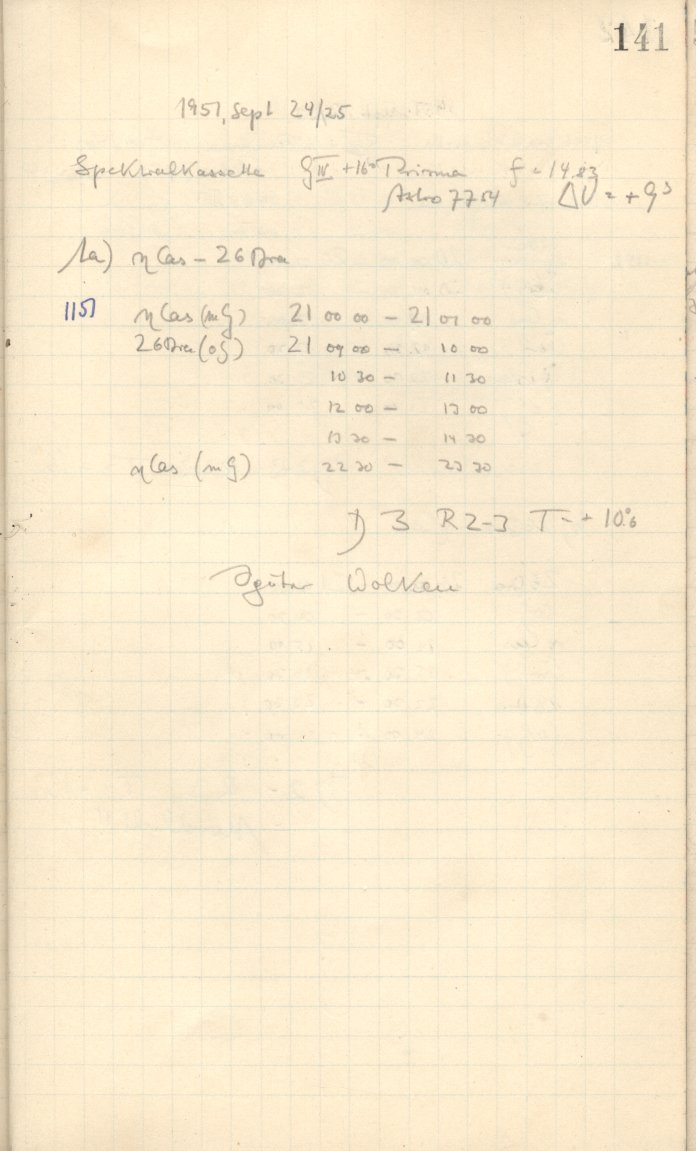 141
1951, Sept 24/25
Spektralkassette G IV +16° Prisma f = 14.83
Astro 7754 ΔU = + 9ˢ
1a) η Cas – 26 Dra
1151 η Cas (mG) 21 00 00 – 21 01 00
26 Dra (oG) 21 09 00 – 10 00
10 30 – 11 30
12 00 – 13 00
13 30 – 14 30
η Cas (mG) 22 30 – 23 30
D 3 R 2–3 T = + 10.°6
Später Wolken